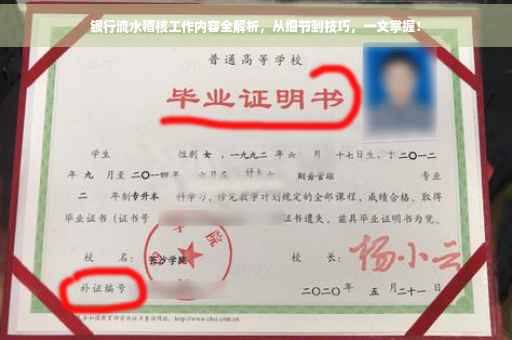 银行流水稽核工作内容全解析，从细节到技巧，一文掌握！
普通高等学校
毕业证明书
学生 性别 女，一九九二年 六 月 十七日生，于二〇一二
年 九 月至二〇一四 年 六月在 财务管理 专业
二 年制专升本 科学习，修完教学计划规定的全部课程，成绩合格，取得
毕业证书（证书号 证书遗失，兹具毕业证明书为凭。
校 名：长沙学院 校 长：杨小云
补证编号 二〇二〇年 五 月二十一日